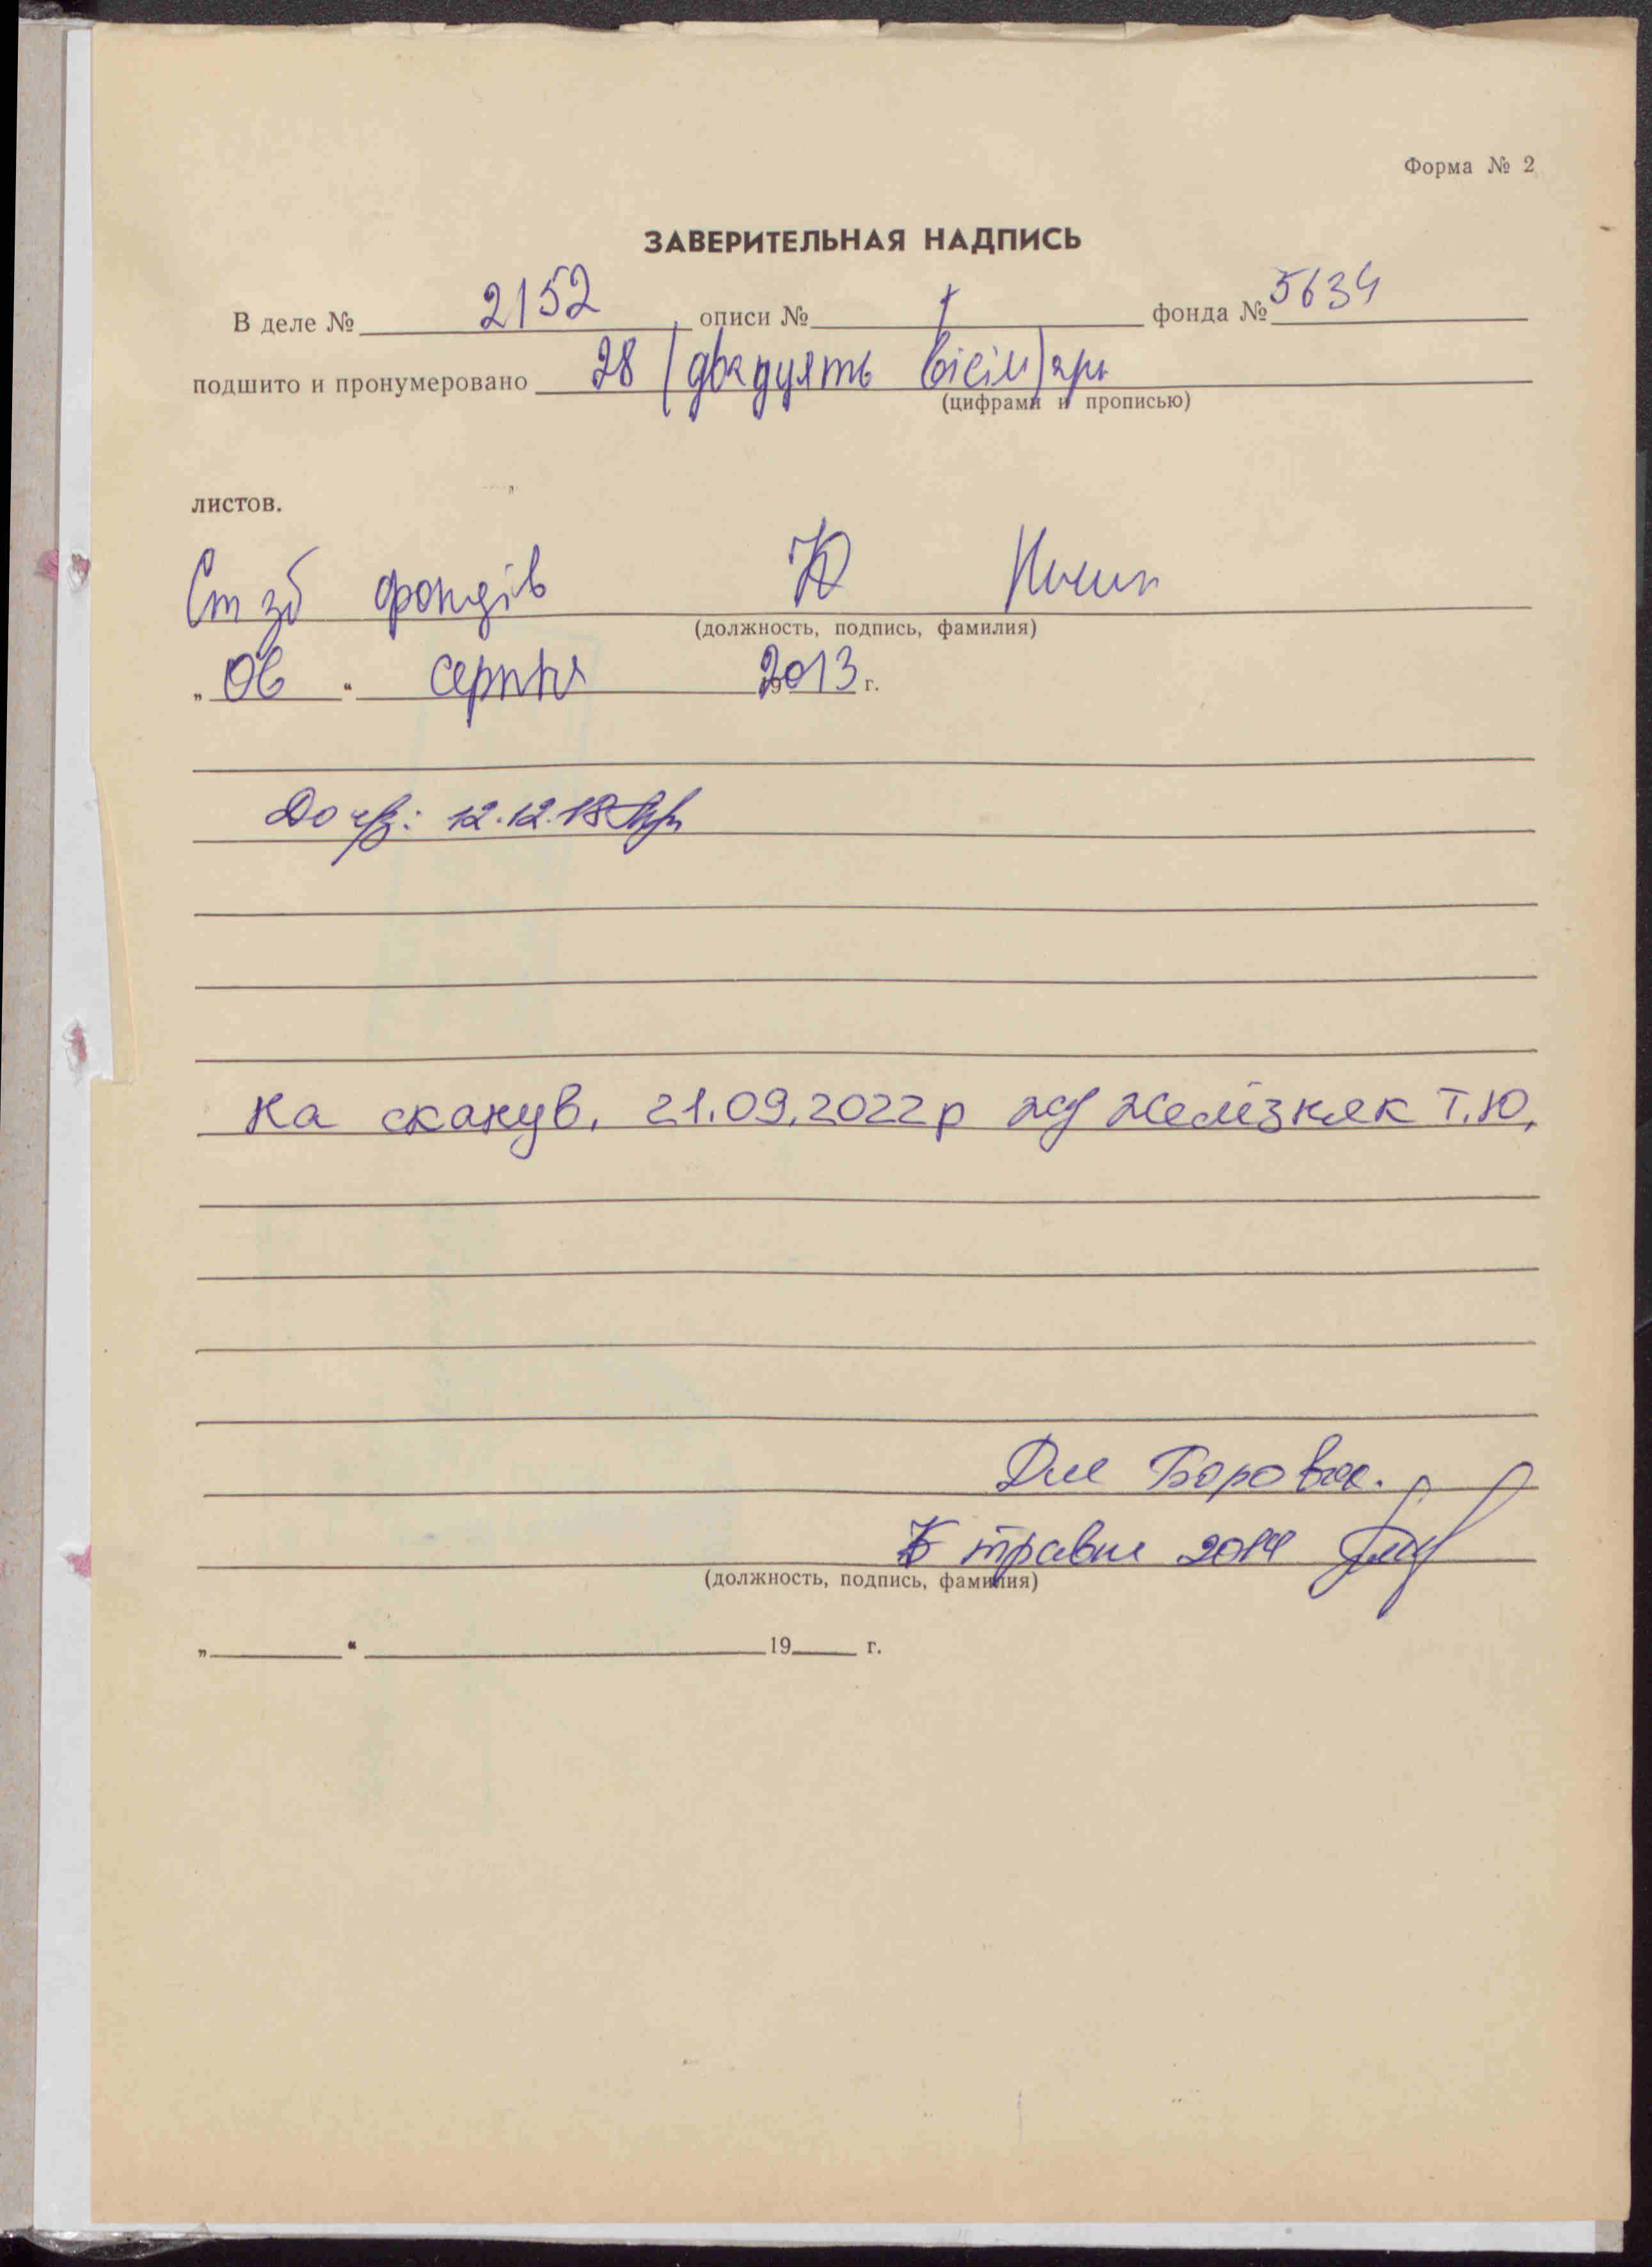 Форма № 2
ЗАВЕРИТЕЛЬНАЯ НАДПИСЬ
В деле № 2152 описи № 1 фонда № 5634
подшито и пронумеровано 28 (двадцять вісім) арк
(цифрами и прописью)
листов.
Ст зб фондів
(должность, подпись, фамилия)
„ 06 “ серпня 2013 г.
12.12.18
На сканув. 21.09.2022р Желізняк Т.Ю.
Для
травня 2014
(должность, подпись, фамилия)
„ “ 19 г.